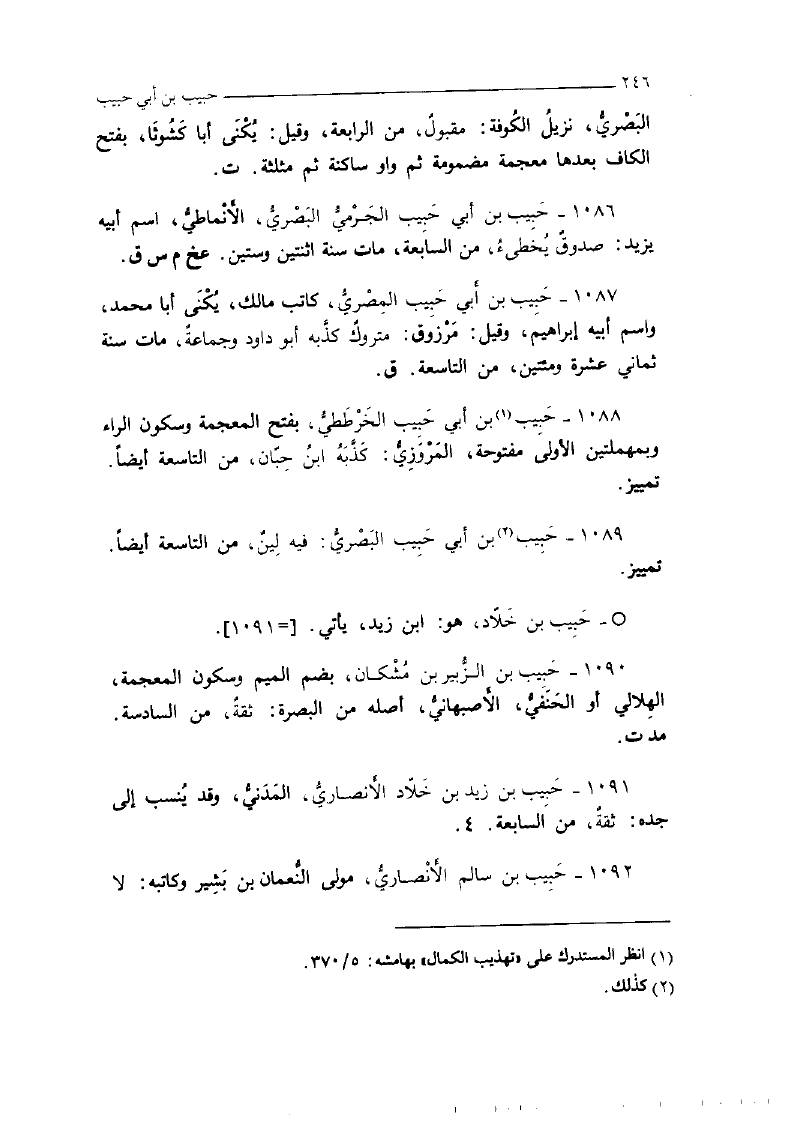 ٢٤٦ حبيب بن أبي حبيب
البَصْريُّ، نزيلُ الكُوفة: مقبولٌ، من الرابعة، وقيل: يُكْنَى أبا كَشُوثَا، بفتح
الكاف بعدها معجمة مضمومة ثم واو ساكنة ثم مثلثة. ت.
١٠٨٦ - حَبِيب بن أبي حَبِيب الجَرْميُّ البَصْريُّ، الأَنْماطيُّ، اسم أبيه
يزيد: صدوقٌ يُخطىءُ، من السابعة، مات سنة اثنتين وستين. عخ م س ق.
١٠٨٧ - حَبِيب بن أبي حَبِيب المِصْريُّ، كاتب مالك، يُكْنَى أبا محمد،
واسم أبيه إبراهيم، وقيل: مَرْزوق: متروكٌ كذَّبه أبو داود وجماعةٌ، مات سنة
ثماني عشرة ومئتين، من التاسعة. ق.
١٠٨٨ - حَبِيب(١) بن أبي حَبِيب الخَرْطَطيُّ، بفتح المعجمة وسكون الراء
وبمهملتين الأولى مفتوحة، المَرْوَزِيُّ: كَذَّبَهُ ابنُ حِبّان، من التاسعة أيضاً.
تمييز.
١٠٨٩ - حَبِيب(٢) بن أبي حَبِيب البَصْريُّ: فيه لِينٌ، من التاسعة أيضاً.
تمييز.
○ - حَبِيب بن خَلّاد، هو: ابن زيد، يأتي. [=١٠٩١].
١٠٩٠ - حَبِيب بن الزُّبير بن مُشْكان، بضم الميم وسكون المعجمة،
الهِلالي أو الحَنَفيُّ، الأَصبهانيُّ، أصله من البصرة: ثقةٌ، من السادسة.
مد ت.
١٠٩١ - حَبِيب بن زيد بن خَلّاد الأَنصاريُّ، المَدَنيُّ، وقد يُنسب إلى
جده: ثقةٌ، من السابعة. ٤.
١٠٩٢ - حَبِيب بن سالم الأَنْصاريُّ، مولى النُّعمان بن بَشِير وكاتبه: لا
(١) انظر المستدرك على «تهذيب الكمال» بهامشه: ٣٧٠/٥.
(٢) كذٰلك.